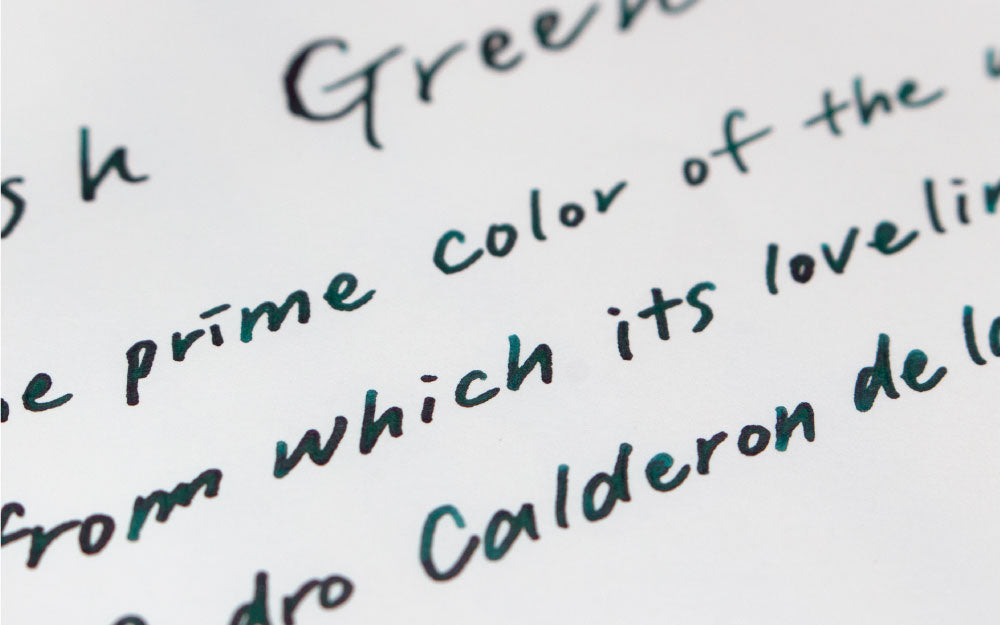 sh Green
e prime color of the
from which its lovelin
dro Calderon de la